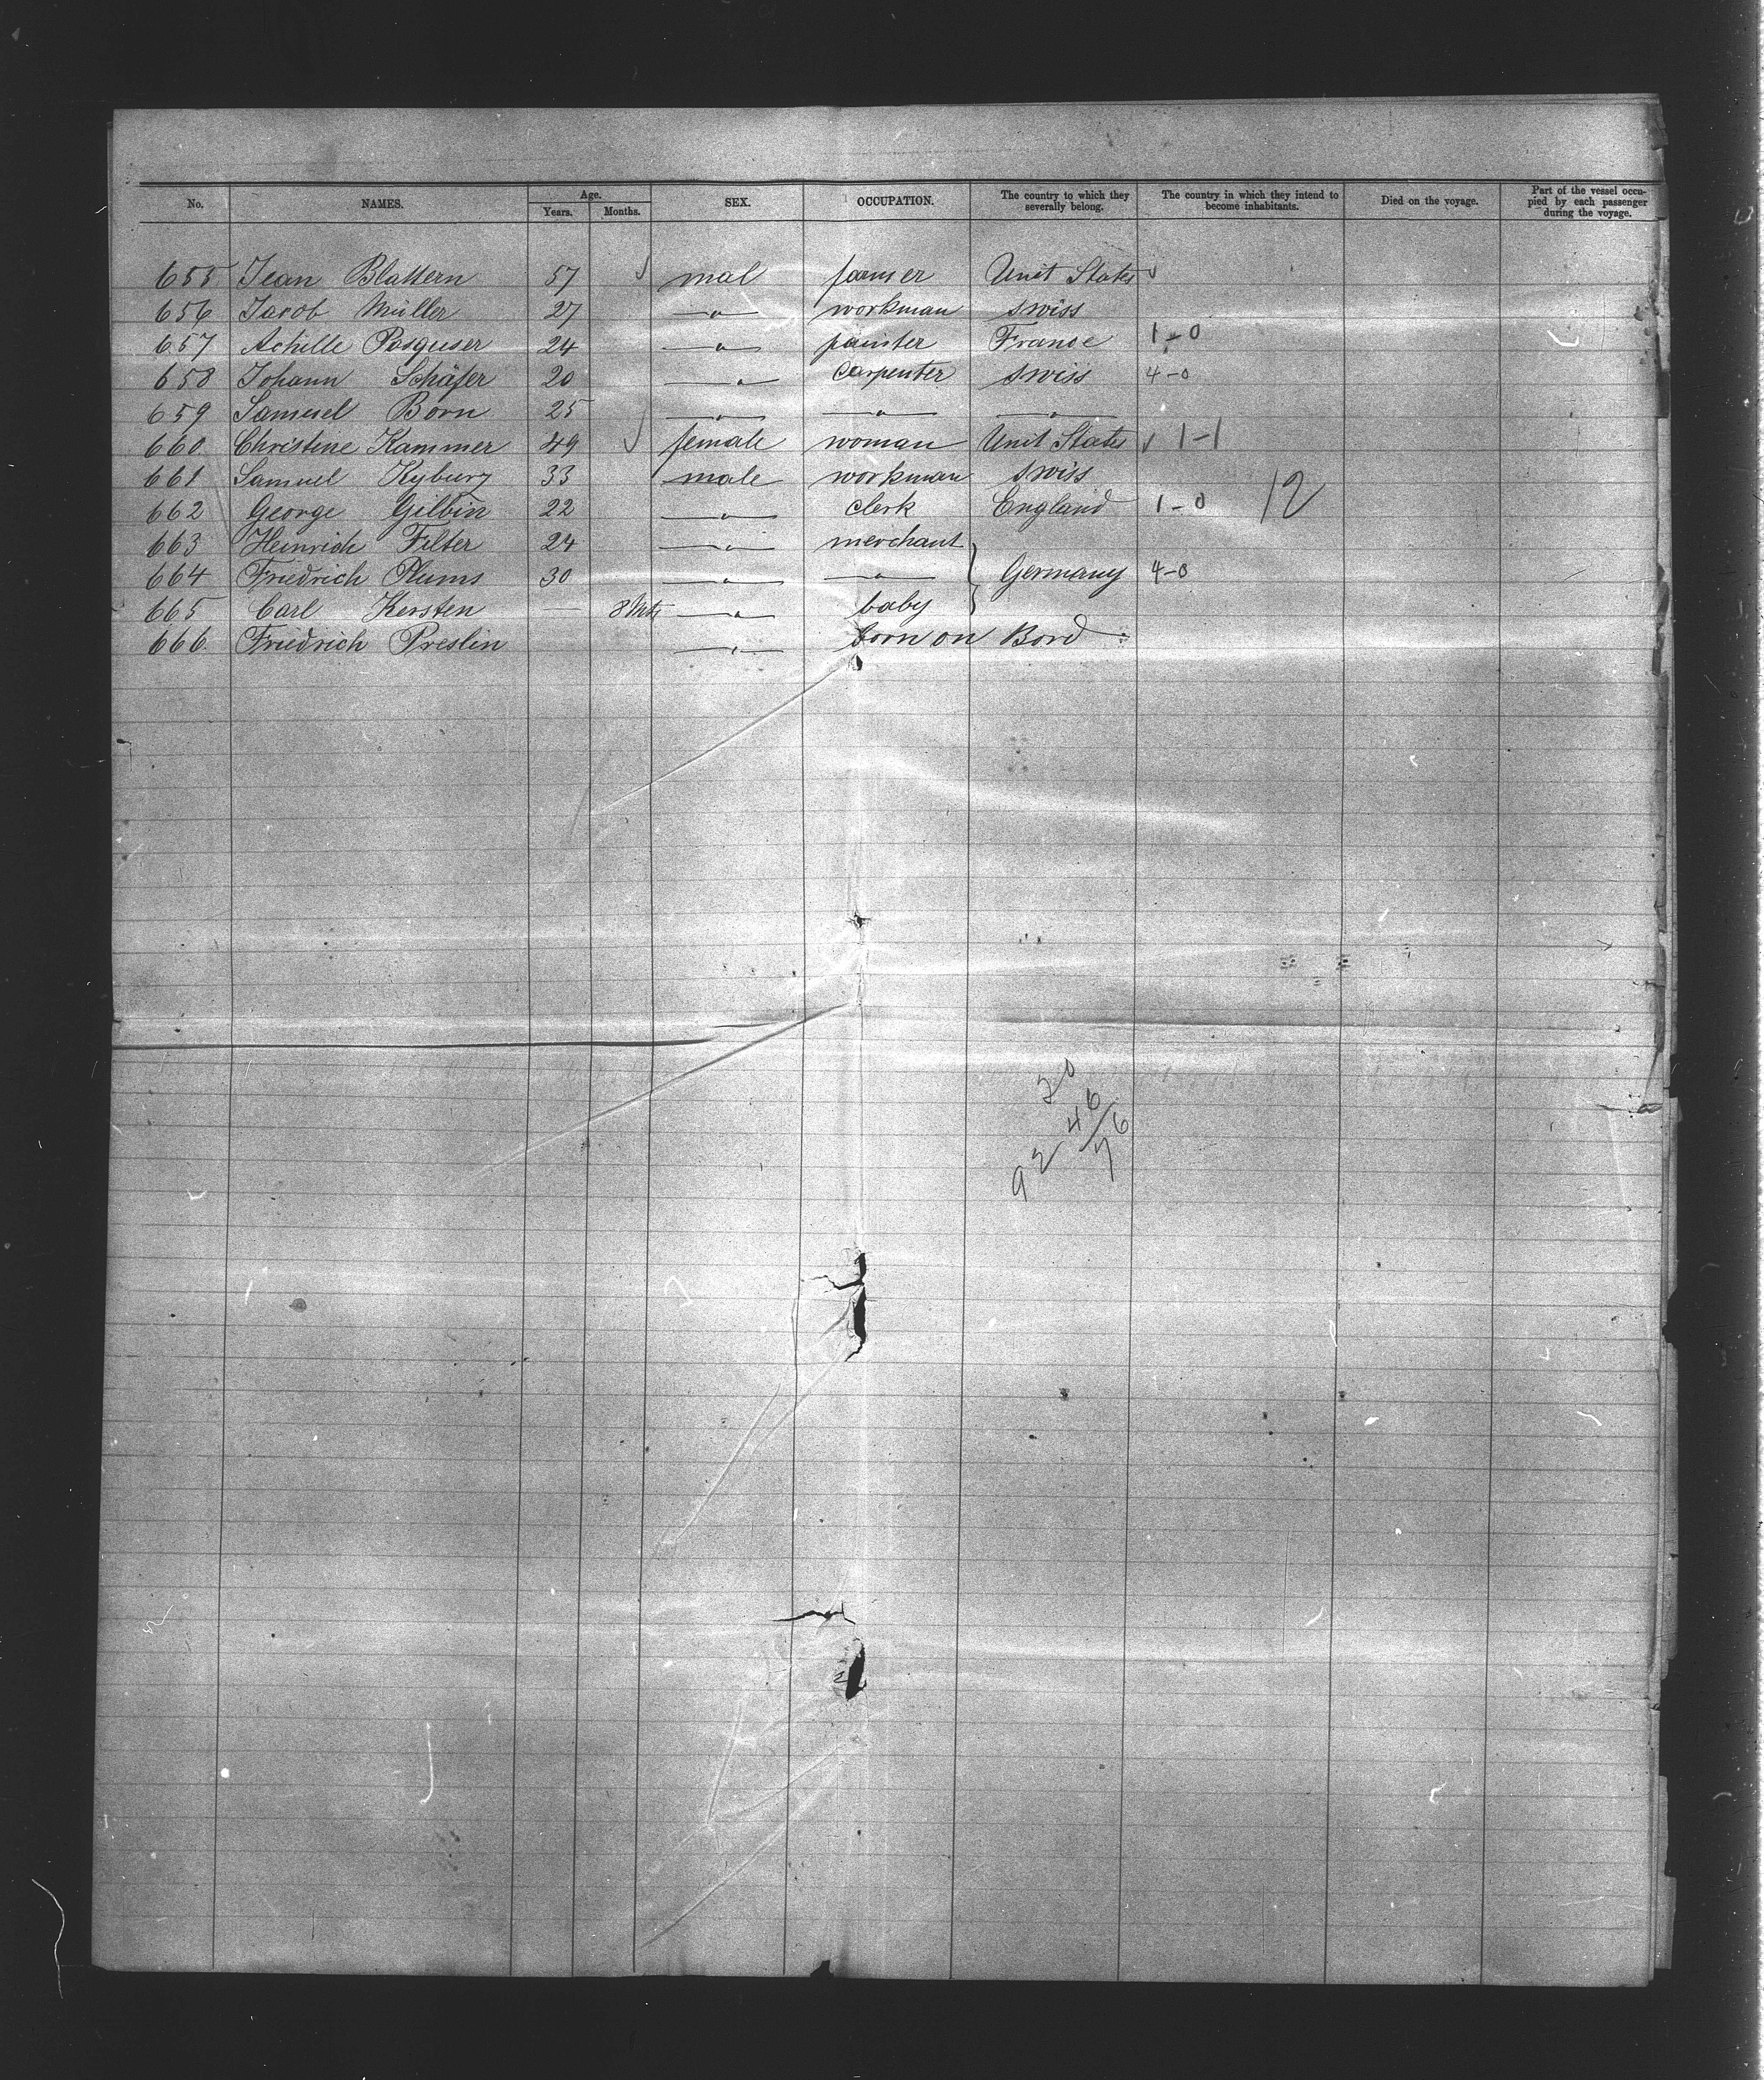 No. NAMES. Age. Years. Months. SEX. OCCUPATION. The country to which they severally belong. The country in which they intend to become inhabitants. Died on the voyage. Part of the vessel occupied by each passenger during the voyage.
655 Jean Blattern 57 ✓ mal farmer Unit States ✓
656 Jacob Müller 27 —"— workman swiss
657 Achille Pasquser 24 —"— painter France 1-0
658 Johann Schäfer 20 —"— Carpenter swiss 4-0
659 Samuel Born 25 —"— —"— —"—
660 Christine Kammer 49 ✓ female woman Unit States ✓ 1-1
661 Samuel Kyburz 33 male workman swiss
662 George Gilbin 22 —"— Clerk England 1-0 12
663 Heinrich Filter 24 —"— merchant
664 Friedrich Plums 30 —"— —"— } Germany 4-0
665 Carl Kersten — 8 Mts —"— baby
666. Friedrich Preslin —"— born on Bord
20
46
76
92